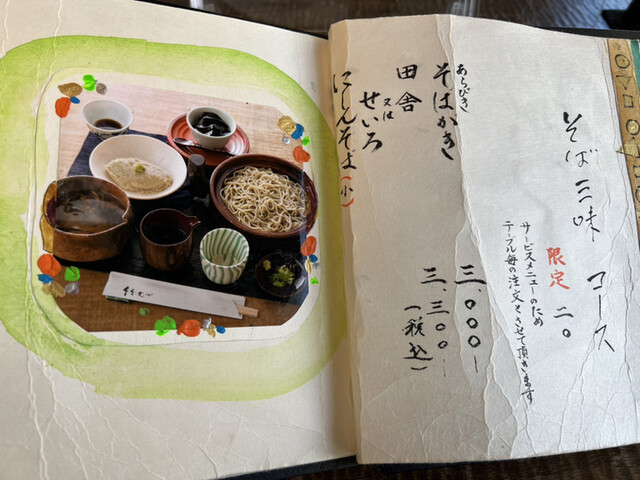 そば三味 コース
限定 二〇
サービスメニューのため
テーブル毎の注文とさせて頂きます
あらびき
そばがき
田舎
又は
せいろ
にしんそば(小)
三、〇〇〇-
三、三〇〇-
(税込)